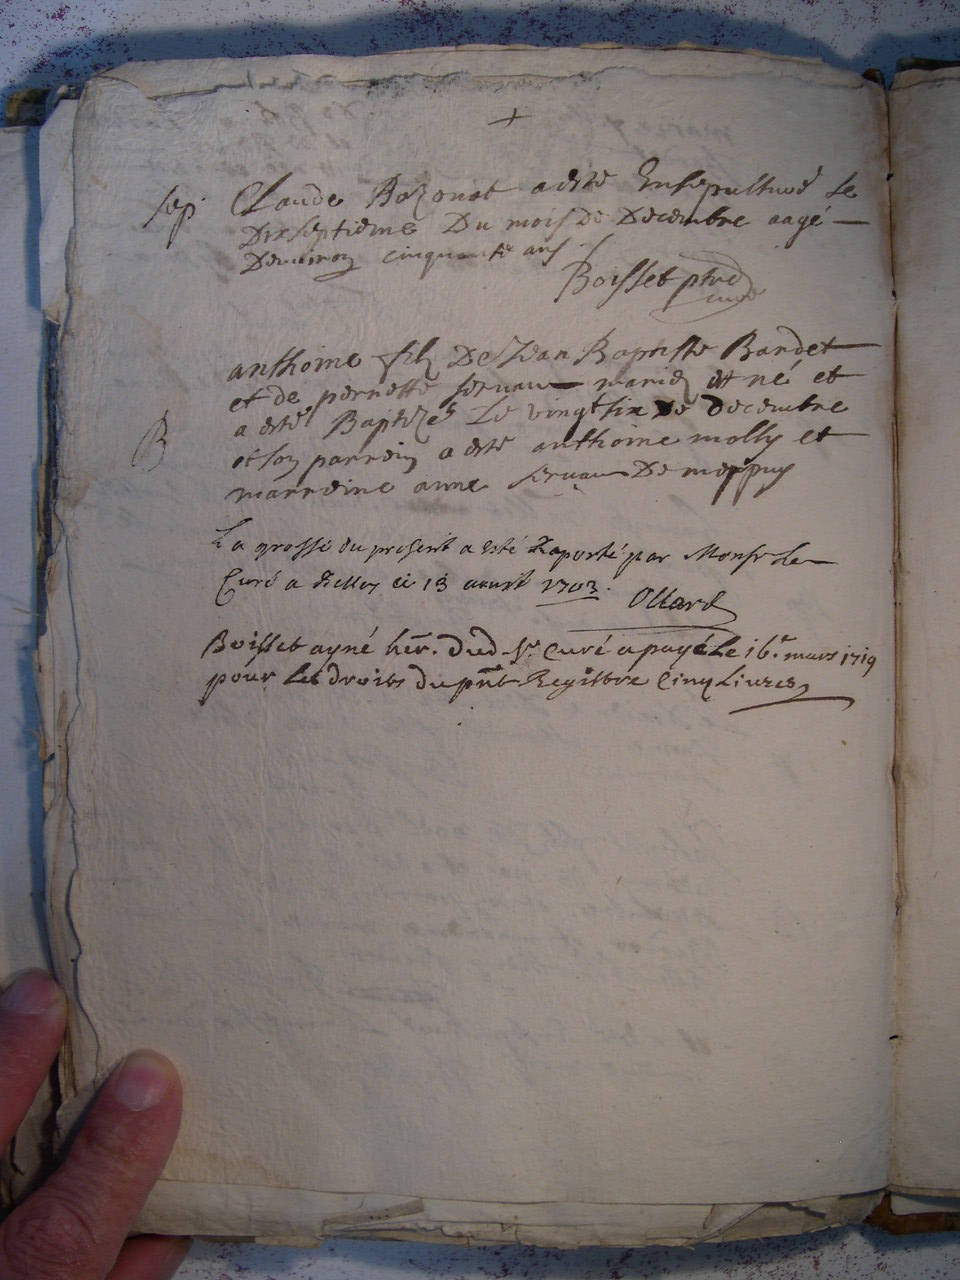 +
sep. Claude Bozonat a esté Ensepulturé le
Dixseptieme Du mois de Decembre aagé
Denuiron cinquante ans
Boisset ptre
curé
anthoine fils De Jean Baptiste Bardet
et de pernette seruau mariez et né et
B a esté Baptizé Le vingtsix de decembre
et son parrein a esté anthoine molly et
marreine anne seruau De
La grosse du present a esté Raporté par Monsr Le
Curé a ce 13 auuril 1703.
Ollard
Boisset ayné her. dud. Sr. Curé a payé Le 16e. mars 1719
pour Les droits du pnt Registre Cinq Liures